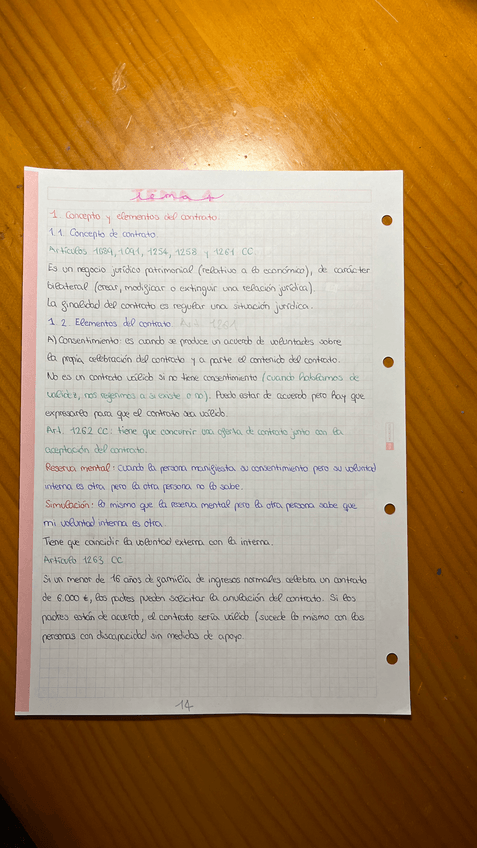 TEMA 4
1. Concepto y elementos del contrato.
1.1. Concepto de contrato.
Artículos 1089, 1091, 1254, 1258 y 1261 CC.
Es un negocio jurídico patrimonial (relativo a lo económico), de carácter
bilateral (crear, modificar o extinguir una relación jurídica).
La finalidad del contrato es regular una situación jurídica.
1.2. Elementos del contrato Art. 1261
A) Consentimiento: es cuando se produce un acuerdo de voluntades sobre
la propia celebración del contrato y a parte el contenido del contrato.
No es un contrato válido si no tiene consentimiento (cuando hablamos de
validez, nos referimos a si existe o no). Puedo estar de acuerdo pero hay que
expresarlo para que el contrato sea válido.
Art. 1262 CC: tiene que concurrir una oferta de contrato junto con la
aceptación del contrato.
Reserva mental: cuando la persona manifiesta su consentimiento pero su voluntad
interna es otra pero la otra persona no lo sabe.
Simulación: lo mismo que la reserva mental pero la otra persona sabe que
mi voluntad interna es otra.
Tiene que coincidir la voluntad externa con la interna.
Artículo 1263 CC
Si un menor de 16 años de familia de ingresos normales celebra un contrato
de 6.000 €, los padres pueden solicitar la anulación del contrato. Si los
padres están de acuerdo, el contrato sería válido (sucede lo mismo con las
personas con discapacidad sin medidas de apoyo.
14